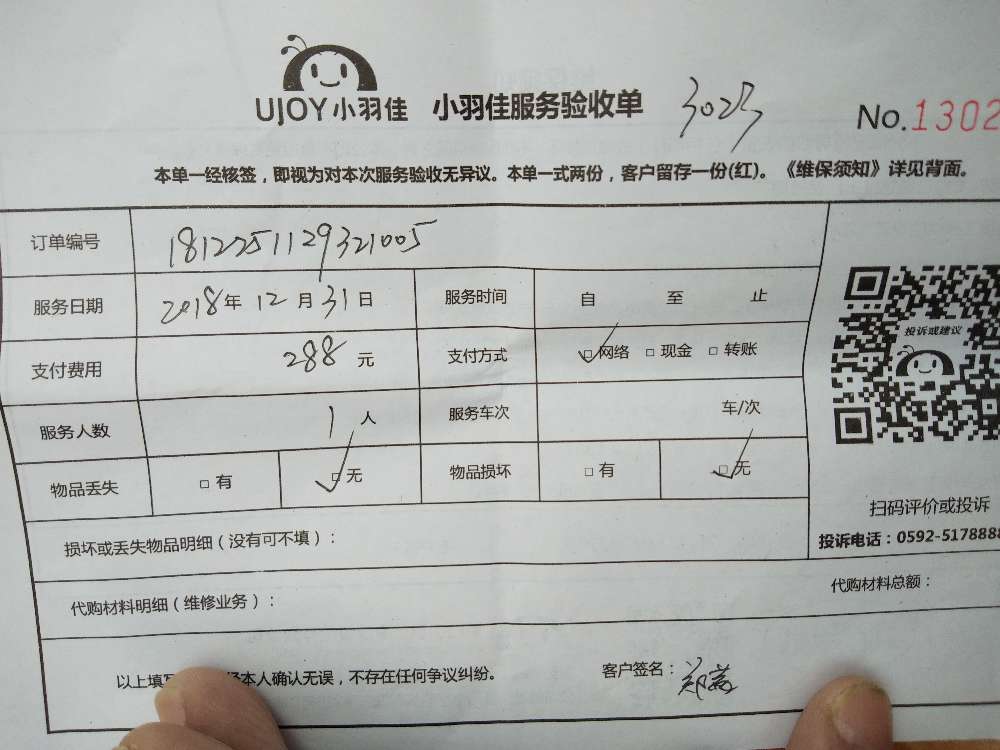 UJOY小羽佳 小羽佳服务验收单 3023 No.1302
本单一经核签，即视为对本次服务验收无异议。本单一式两份，客户留存一份(红)。《维保须知》详见背面。
订单编号 1812251129321005
服务日期 2018年12月31日 服务时间 自 至 止
投诉或建议
支付费用 288元 支付方式 □网络 □现金 □转账
服务人数 1人 服务车次 车/次
物品丢失 □有 □无 物品损坏 □有 □无
扫码评价或投诉
投诉电话：0592-5178888
损坏或丢失物品明细（没有可不填）：
代购材料明细（维修业务）： 代购材料总额：
以上填 本人确认无误，不存在任何争议纠纷。 客户签名：